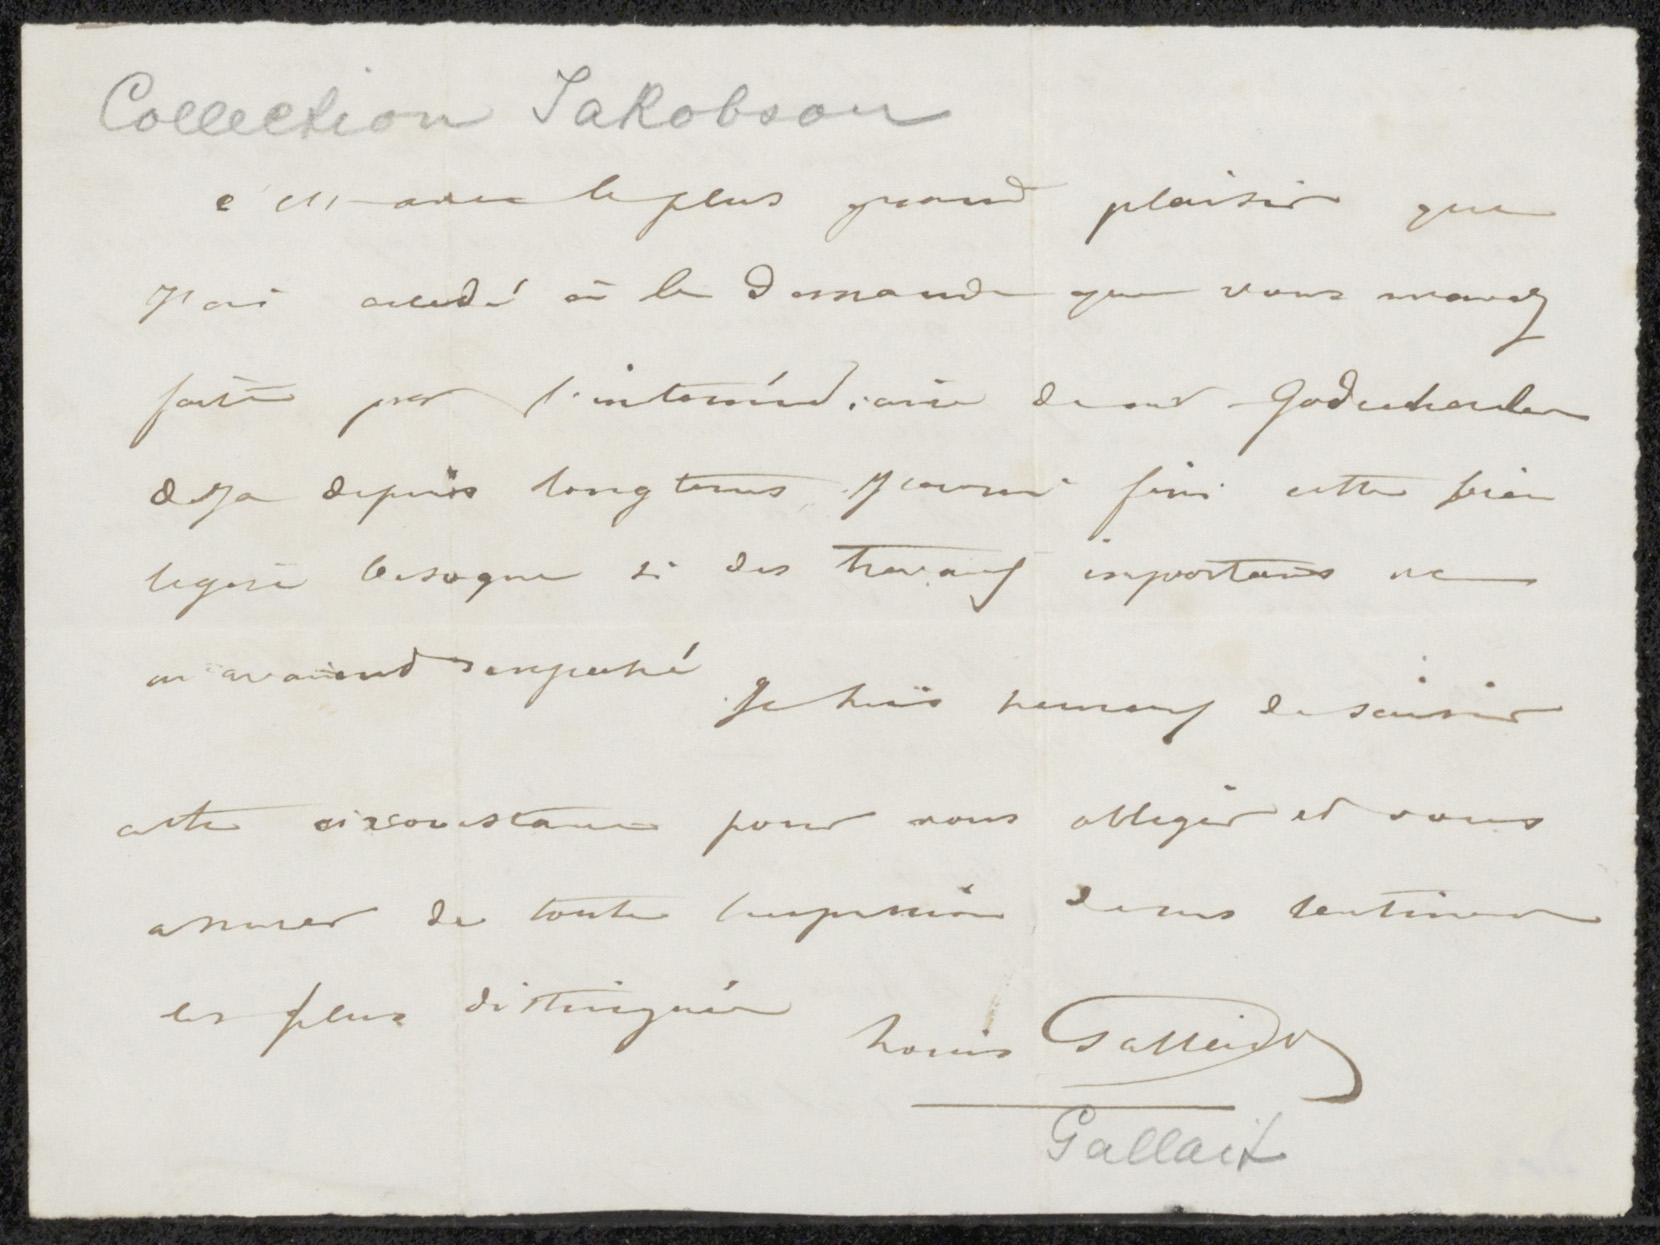 Collection Jakobson
c'est avec le plus grand plaisir que
j'ai accedé à la demande que vous mavez
faite par l'intermédiaire de mr
deja depuis longtems j'aurai fini cette bien
legere besogne si des travaux importans ne
m'avaient empeché
Je suis heureux de saisir
cette circonstance pour vous obliger et vous
assurer de toute l'expression de mes sentimens
les plus distingués
Louis Gallait
Gallait